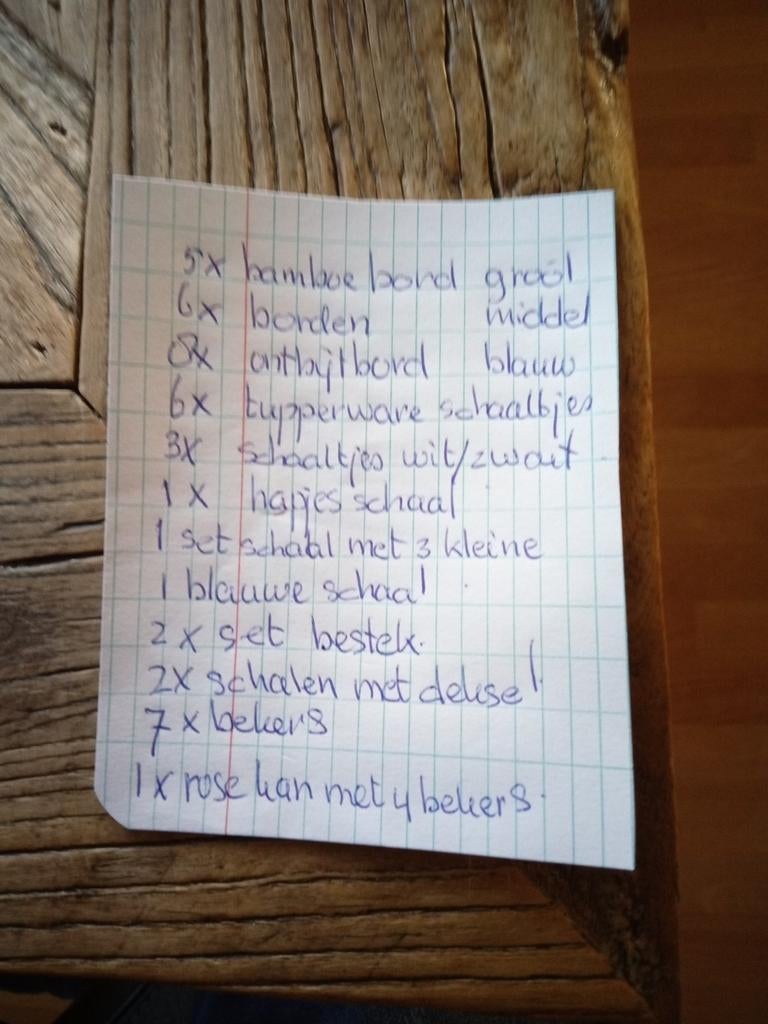 5x bamboe bord groot
6x borden middel
8x ontbijtbord blauw
6x tupperware schaaltjes
3x schaaltjes wit/zwart
1x hapjes schaal
1 set schaal met 3 kleine
1 blauwe schaal
2x set bestek.
2x schalen met deksel
7x bekers
1x rose kan met 4 bekers.